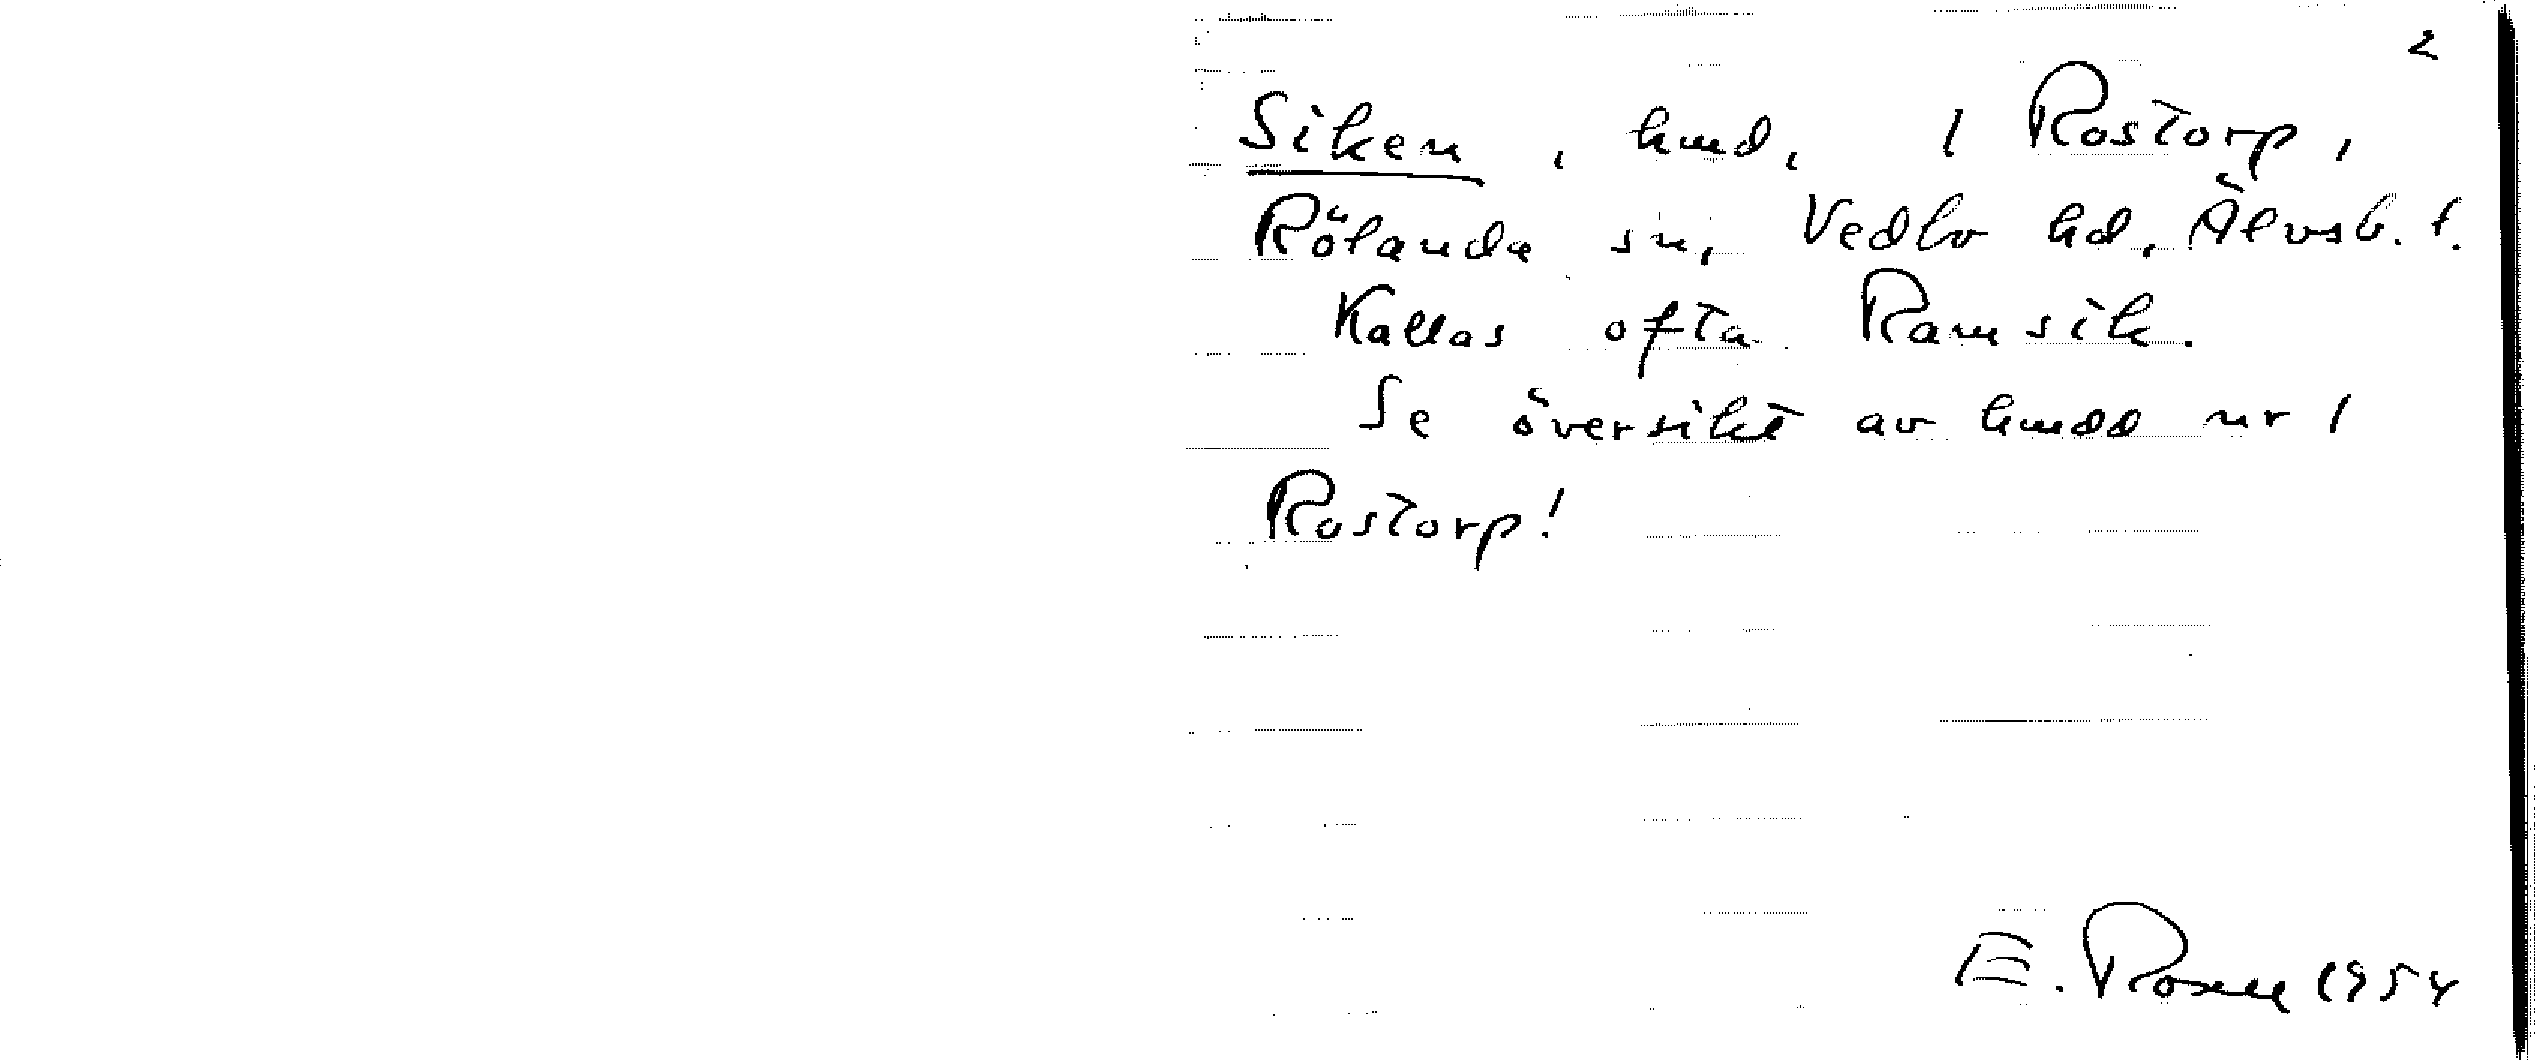 2
Siken, hmd, 1 Rostorp,
Rölanda sn, Vedbo hd, Älvsb. l.
Kallas ofta Ramsik.
Se översikt av hmdd nr 1
Rostorp!
E. Rosell 1954